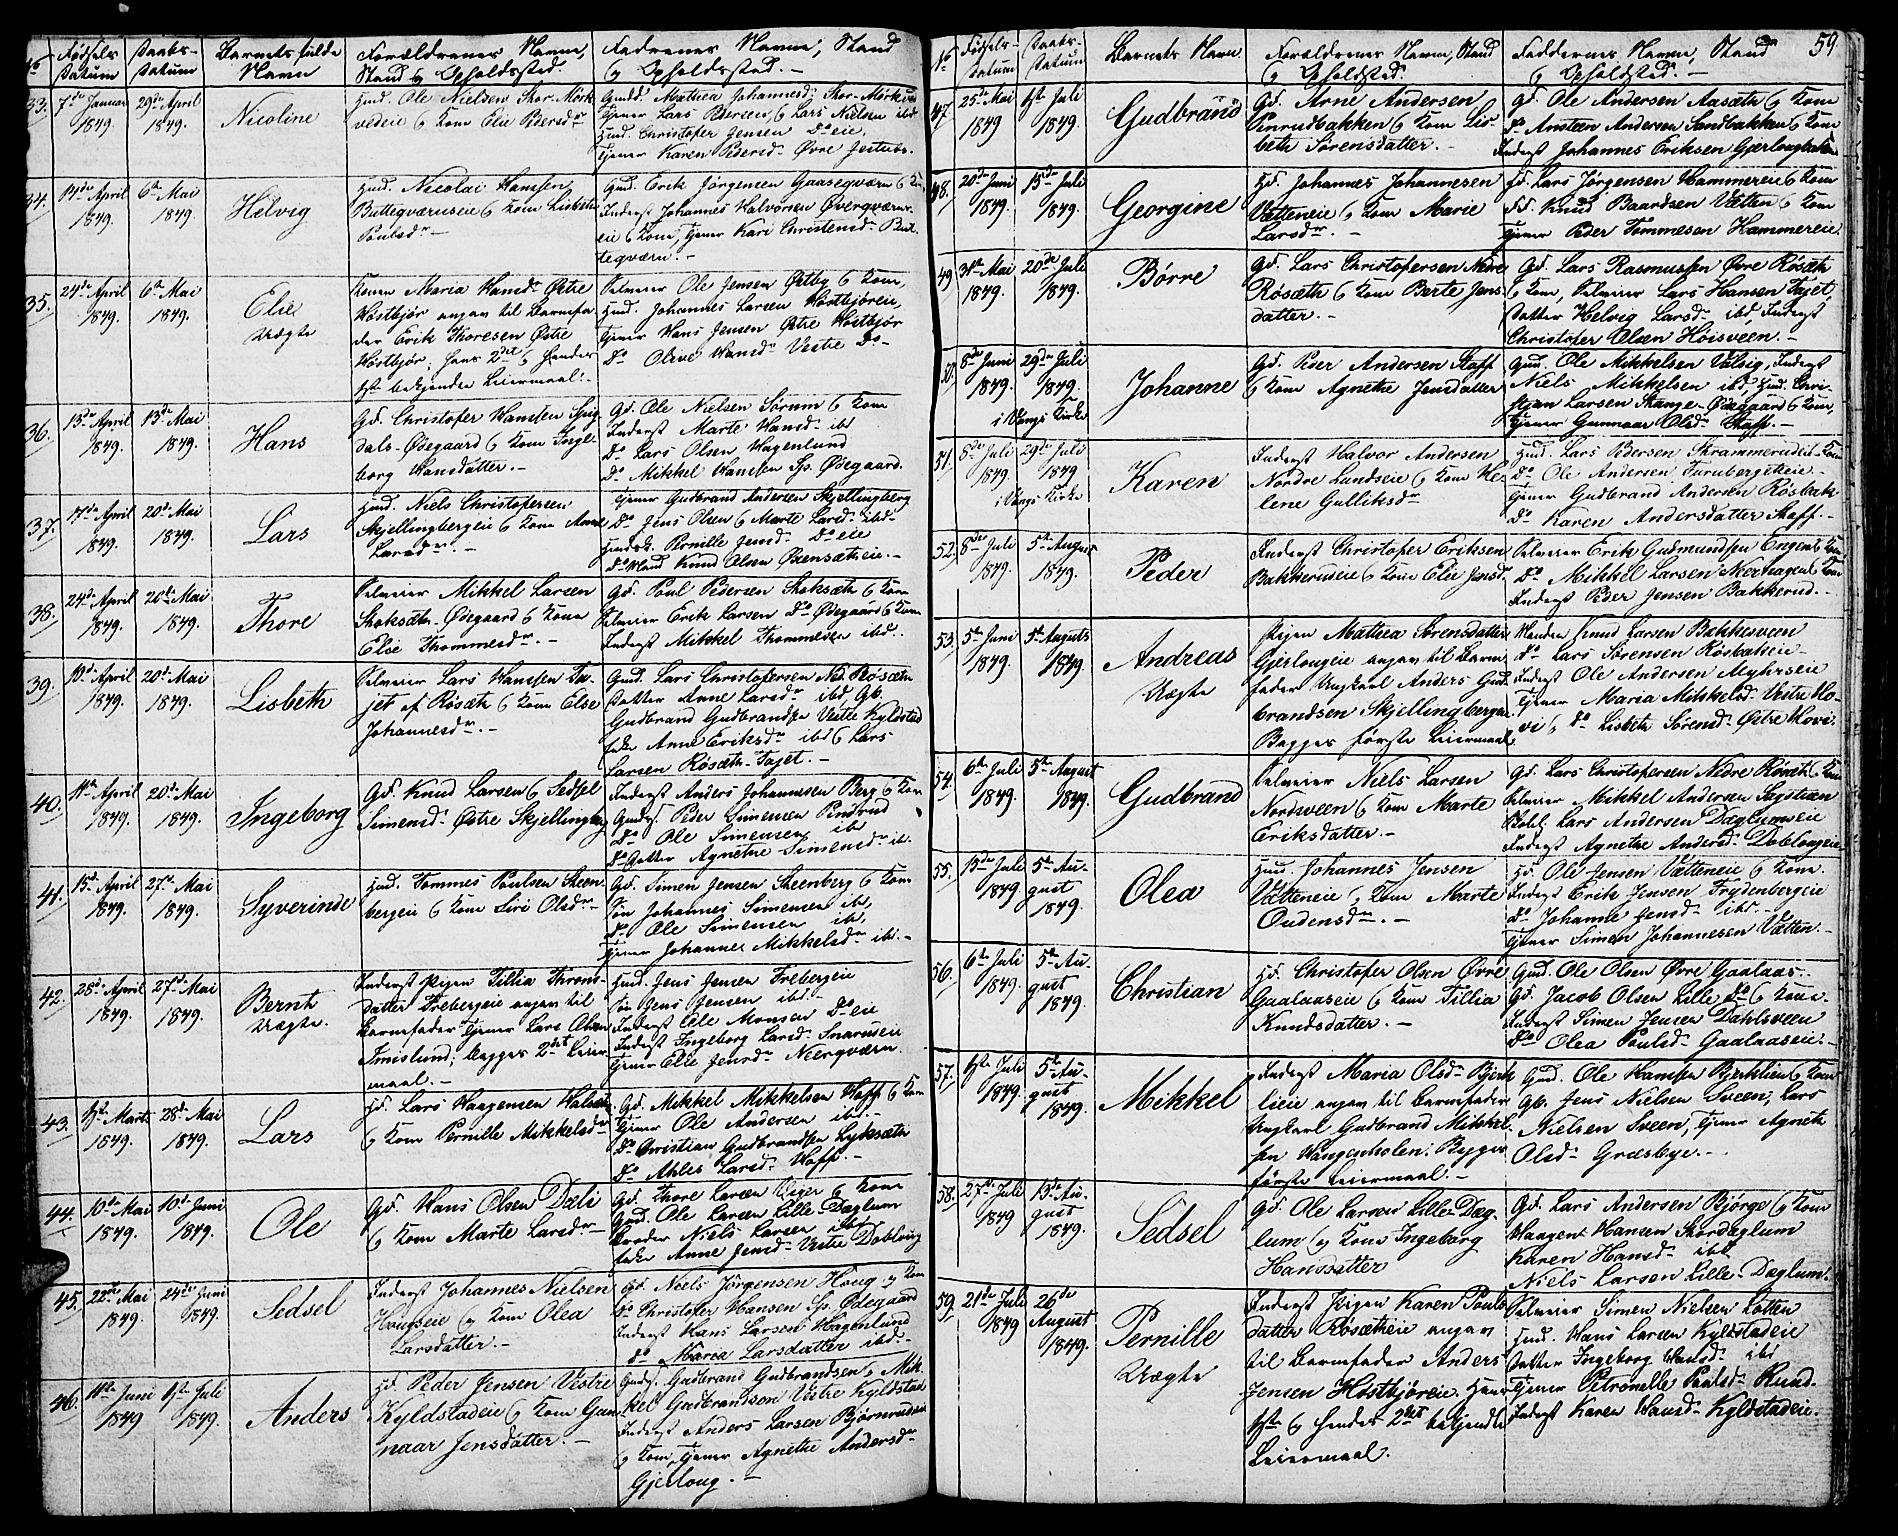 No Fødsels Datum
Daabs-Datum
Barnets fulde Navn
Forældrenes Navne, Stand og Opholdssted.
Faddrenes Navne, Stand og Opholdssted. —
33. 7de Januar 1849.
29de April 1849.
Nicoline
Ole Nielsen Stor-Mørk-
vedeie og Kone Elie Pedersdr
Mathea Johannesd. Stor-Mørkv
Tjener Lars Larsen og Lars Nielsen ibd
Christofer Jensen Do eie,
Tjener Karen Pedersd. Øvre
34. April 1849.
6te Mai 1849.
Helvig
Nicolai Hansen
og Kone Lisbeth
Poulsdr —
Gmd. Erik Jørgensen Gaaseqværn og Kone
Inderst Johannes Halvorsen Øverqværns-
eie og Kone, Tjener Kari Christensd.
teqværn. —
35. 24de April 1849.
6te Mai 1849.
Elie
Uægte
Maria Hansdr Østre
Hostbjør angav til Barnefa-
der Erik Thoresen Østre
Hostbjør; hans 2det og hendes
1ste bekjendte Leiermaal. —
Selveier Ole Jensen Østby og Kone
Johannes Larsen Hostbjøreie
Tjener Hans Jensen Østre Hostbjør
Do Oleve Hansd. Vestre Do —
36. 15de April 1849.
13de Mai 1849.
Hans
Gd. Christofer Hansen
dals-Ødegaard og Kone Inge-
borg Hansdatter. —
Gd. Ole Nielsen Sørum og Kone
Inderst Marte Hansd. ibd
Do Lars Olsen Hagenlund
Do Mikkel Hansen Sp. Ødegaard.
37. 17de April 1849.
20de Mai 1849.
Lars
Niels Christofersen
Skjellingbergeie og Kone Anne
Larsdr. —
Tjener Gudbrand Andersen Skjellingberg
Do Jens Olsen og Marte Larsd. ibd —
Pernille Jensd. Do eie
Knud Olsen —
38. 24de April 1849.
20de Mai 1849.
Thore
Selveier Mikkel Larsen
Stoksæth-Ødegaard og Kone
Elie Thommesdr. —
Gd. Poul Pedersen Stoksæth og Kone
Selveier Erik Larsen Do Ødegaard og Kone
Inderst Mikkel Thommesen ibd.
39. 10de April 1849.
20de Mai 1849.
Lisbeth
Selveier Lars Hansen Ta-
jet af Røsæth og Kone Else
Johannesdr. —
Gmd. Lars Christofersen Ned. Røsæth
Datter Anne Larsdr ibd Gb.
Gudbrand Gudbrandsen Vestre Kyldstad
Anne Eriksdr ibd og Lars
Larsen Røsæth-Tajet. —
40. 11te April 1849.
20de Mai 1849.
Ingeborg
Gd. Knud Larsen og Sedsel
Simensd. Østre Skjellingberg
Inderst Anders Johannesen Berg og Kone
Peder Simensen Pindrud
Do Ole Simensen ib
Datter Agnethe Simensd. ib.
41. 15de April 1849.
27de Mai 1849.
Syverinde
Tommes Poulsen Steen-
bergeie og Kone Siri Olsdr —
Gd. Simen Jensen Steenberg og Kone
Søn Johannes Simensen ib,
Do Ole Simensen ib,
Tjener Johanne Mikkelsdr ib. —
42. 28de April 1849.
27de Mai 1849.
Bernt
Uægte.
Inderst Pigen Tillia Throns-
datter Frebergeie angav til
Barnefader Tjener Lars Olsen
Imislund; begges 2det Leier-
maal. —
Jens Jensen Frebergeie
Søn Jens Jensen ibd —
Inderst Ole Monsen Do eie
Inderst Ingeborg Larsd. Snarueie
Tjener Elie Jensdr Neerqværn.
43. 1ste Marts 1849.
28de Mai 1849.
Lars
Lars Haagensen
og Kone Pernille Mikkelsdr
Gd. Mikkel Mikkelsen Hoff og Kone
Tjener Ole Andersen ibd. —
Do Christian Gudbrandsen Lyksæth
Do Ahles Larsd. Hoff. —
44. 10de Mai 1849.
10de Juni 1849.
Ole
Gd. Hans Olsen Dæli
og Kone Marte Larsdr —
Gd. Thore Larsen Viger og Kone
Gmd. Ole Larsen Lille Dæglum
Broder Niels Larsen ibd
Anne Jensd. Vestre Dobloug
45. 22de Mai 1849.
24de Juni 1849.
Sedsel
Inderst Johannes Nielsen
Hougseie og Kone Olea
Larsdatter. —
Gd. Niels Jørgensen Houg og Kone
Do Christofer Hansen Sp. Ødegaard
Inderst Hans Larsen Hagenlund
Do Maria Larsdatter ibd —
46. 11te Juni 1849
1ste Juli 1849.
Anders
Peder Jensen Vestre
Kyldstadeie og Kone Gun-
naar Jensdatter. —
Gudbrand Gudbrandsen, Mik-
kel Gudbrandsen Vestre Kyldstad
Inderst Anders Larsen Bjørnrudeie
og Kone, Tjener Agnethe Andersdr
Gjerloug. —
59
No Fødsels-Datum
Daabs-Datum
Barnets Navn
Forældrenes Navn, Stand og Opholdsted.
Faddernes Navne, Stand og Opholdsted. —
47. 25de Mai 1849
1ste Juli 1849.
Gudbrand
Gd. Arne Andersen
Pinrudbakken og Kone Lis-
beth Sørensdatter. —
Gd. Ole Andersen Aasæth og Kone
Do Ansteen Andersen Sandbakken og Kone
Inderst Johannes Eriksen Gjerlougbakken
48. 20de Juni 1849.
15de Juli 1849.
Georgine
Hd. Johannes Johannesen
Vætteneie og Kone Marie
Larsdr. —
Hd. Lars Jørgensen Hammereie og Kone
Knud Baardsen Vætten og Kone
Tjener Peder Tommesen Hammereie.
49. 31te Mai 1849.
20de Juli 1849.
Børre
Gd. Lars Christofersen Nedre
Røsæth og Kone Berte Jens-
datter. —
Gd. Lars Rasmussen Øvre Røsæth
og Kone, Selveier Lars Hansen Tajet,
Datter Helvig Larsd. ibd, Inderst
Christofer Olsen Høisveen. —
50. 8de Juni 1849.
29de Juli 1849.
i Vangs Kirke
Johanne
Gd. Peder Andersen Staff
og Kone Agnethe Jensdatter
Gmd. Ole Mikkelsen Valsig, Inderst
Niels Mikkelsen ibd Hmd. Chri-
stian Larsen Stange-Ødegaard og Kone
Tjener Gunnaar Olsd. Staff. —
51. 8de Juli 1849
29de Juli 1849
i Vangs Kirke
Karen
Inderst Halvor Andersen
Nordre Lundseie og Kone He-
lene Gulliksdr
Hmd. Lars Pedersen og Kone
Do Ole Andersen Furubergeie —
Tjener Gudbrand Andersen Røsbak
Do Karen Andersdatter Staff. —
52. 8de Juli 1849.
5te August 1849.
Peder
Inderst Christofer Eriksen
Bakkerudeie og Kone Elie Jensd.
Selveier Erik Gudmundsen Engen og Kone
Do Mikkel Larsen og Kone
Inderst Peder Jensen Bakkerud. —
53. 5te Juni 1849.
5te Augusts 1849.
Andreas
Uægte
Pigen Mathea Sørensdatter
Gjerlougeie angav til Barne-
fader Ungkarl Anders Gud-
brandsen Skjellingbergeie.
Begges første Leiermaal.
Manden Knud Larsen Bakkesveen
Do Lars Sørensen
Inderst Ole Andersen Myhrseie
Tjener Maria Mikkelsd. Vestre Ho-
vi og Do Lisbeth Sørensd. Østre Hovi.
54. 6te Juli 1849.
5te August 1849.
Gudbrand
Selveier Niels Larsen
Nordsveen og Kone Marte
Eriksdatter. —
Gd. Lars Christofersen Nedre Røsæth og Kone
Selveier Mikkel Andersen
Lars Andersen Dæglumeie
Inderst Agnethe Andersd. Doblougeie
55. 15de Juli 1849
5te August 1849.
Olea
Hmd. Johannes Jensen
Vætteneie og Kone Marte
Oudensdr. —
Hd. Ole Jensen Vætteneie og Kone.
Inderst Erik Jensen Frydenbergeie
Do Johanne Jensd. ibd. —
Tjener Simen Johannesen Vætten. —
56. 6te Juli 1849
5te August 1849.
Christian
Hd. Christofer Olsen Øvre
Gaalaaseie og Kone Tillia
Knudsdatter. —
Gmd. Ole Olsen Øvre Gaalaas —
Gd. Jacob Olsen Lille Do og Kone —
Inderst Simen Jensen Dahlsveen
Do Olea Poulsd. Gaalaaseie. —
57. 1ste Juli 1849.
5te August 1849.
Mikkel
Inderst Maria Olsdr Bjerk-
lieie angav til Barnefader
Ungkarl Gudbrand Mikkel-
sen Vangensholen. Begges
første Leiermaal. —
Gmd. Ole Hansen Bjerklien og Kone
Gb. Jens Nielsen Sveen, Lars
Nielsen Sveen, Tjener Agnethe
Olsd. Græsbye. —
58. 27de Juli 1849
13de August 1849.
Sedsel
Gd. Ole Larsen Lille-Dæg-
lum og Kone Ingeborg
Hansdatter
Gd. Lars Andersen Bjørge og Kone
Haagen Hansen Stordæglum
Karen Hansd. ibd
Niels Larsen Lille-Dæglum.
59. 21de Juli 1849
26de August 1849.
Pernille
Uægte
Inderst Pigen Karen Pouls-
datter Røsætheie angav
til Barnefader Anders
Jensen Hostbjøreie. Hans
1ste og hendes 2det bekjendte
Leiermaal.
Selveier Simen Nielsen Lotten
Hmd. Hans Larsen Kyldstadeie
Datter Ingeborg Hansd. ibd
Tjener Petronelle Poulsd. Rund-
Inderst Karen Hansd. Kyldstadeie.